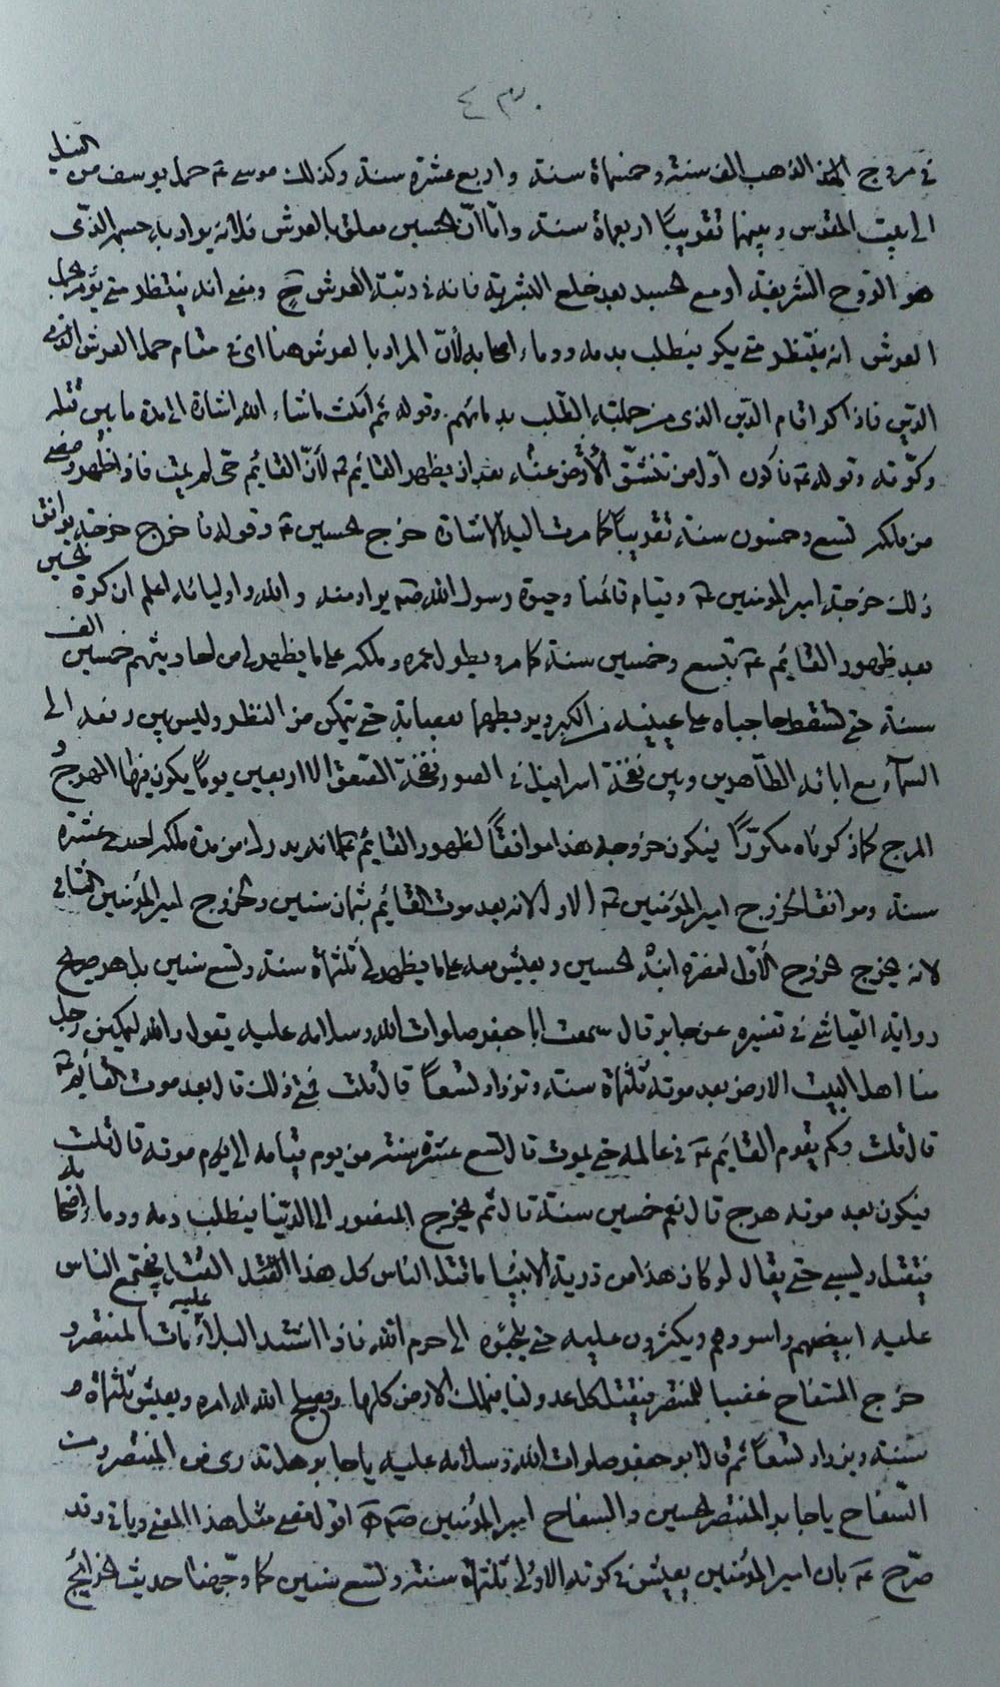 ٤٣٠
في مروج الذهب الف سنة وخمسمائة سنة واربع عشرة سنة وكذلك موسى ع حمل يوسف من النيل
الى بيت المقدس وبينهما تقريبًا اربعمائة سنة وامّا انّ الحسين معلق بالعرش فلانه يراد به جسمه الذّى
هو الروح الشريفة او مع الجسد بعد خلع البشرية فانه في رتبة العرش ومعنى انه ينتظر متى يؤمر بحمل
العرش انه ينتظر متى يكر فيطلب بدمه ودماء اصحابه لأنّ المراد بالعرش هنا اى في مقام حمل العرش الذى
الدّين فاذا كر اقام الدين الذى من جملته الطلب بدمائهم وقوله ثم امكث ماشاء الله اشارة الى مدة ما بين قتله
وكرّته وقوله ع فاكون اوّل من تنشقّ الأرض عنه بعد ان يظهر القائم ع لأنّ القائم حى لم يمت فاذا ظهر ومضى
من ملكه تسع وخمسون سنة تقريبًا كما مرت اليه الاشارة خرج الحسين ع وقوله فاخرج خرجة يوافق
ذلك خرجة امير المؤمنين ع وقيام قائمنا وحيوة رسول الله ص يراد منه والله واوليائه اعلم ان كرة الحسين
بعد ظهور القائم ع بتسع وخمسين سنة كما مر ويطول عمره وملكه على ما يظهر لى من احاديثهم خمسين الف
سنة حتى تسقط حاجباه على عينيه من الكبر ويربطهما بعصابة حتى يتمكن من النظر وليس بين رفعه الى
السمآء مع ابائه الطّاهرين وبين نفخة اسرافيل في الصور نفخة الصعق الا اربعين يومًا يكون فيها الهرجُ
المرج كما ذكرناه مكرّرًا فيكون خروجه هذا موافقًا لظهور القائم ع لانه يدرك من مدة ملكه احدى عشرة
سنة وموافقا لخروج امير المؤمنين ع الاول لانه بعد موت القائم بثمان سنين ولخروج امير المؤمنين الثانى
لانه يخرج خروج الأول لنصرة ابنه الحسين ويعيش بعده على ما يظهر لى ثلثمائة سنة وتسع سنين بل هو صريح
رواية العياشى في تفسيره عن جابر قال سمعت ابا جعفر صلوات الله وسلامه عليه يقول والله ليملكن رجل
منا اهل البيت الارض بعد موته ثلثمائة سنة وتزداد تسعًا قال قلت فمتى ذلك قال بعد موت القائم ع
قال قلت وكم يقوم القائم ع في عالمه حتى يموت قال تسع عشرة سنة من يوم قيامه الى يوم موته قال قلت
فيكون بعد موته هرج قال نعم خمسين سنة قال ثم يخرج المنصور الى الدّنيا فيطلب دمه ودماء اصحابه
فيقتل ويسبى حتى يقال لو كان هذا من ذرية الانبيا ما قتل الناس كل هذا القتل فيجتمع الناس
عليه ابيضهم واسودهم ويكثرون عليه حتى يلجئوه الى حرم الله فاذا اشتد البلاء عليه مات المنتصر و
خرج السفاح غضبا للمنتصر فيقتل كل عدو لنا فيملك الارض كلها ويصلح الله له امره ويعيش ثلثمائة
سنة ويزداد تسعًا ثم قال ابو جعفر صلوات الله وسلامه عليه يا جابر هل تدرى من المنتصر ومن
السّفاح يا جابر المنتصر الحسين والسفاح امير المؤمنين ص اقول فمعنى مثل هذا المعنى وياتى وقد
صرّح ع بان امير المؤمنين يعيش في كرته الاولى ثلثمائة سنة وتسع سنين كما وجّهنا حديث الخرائج